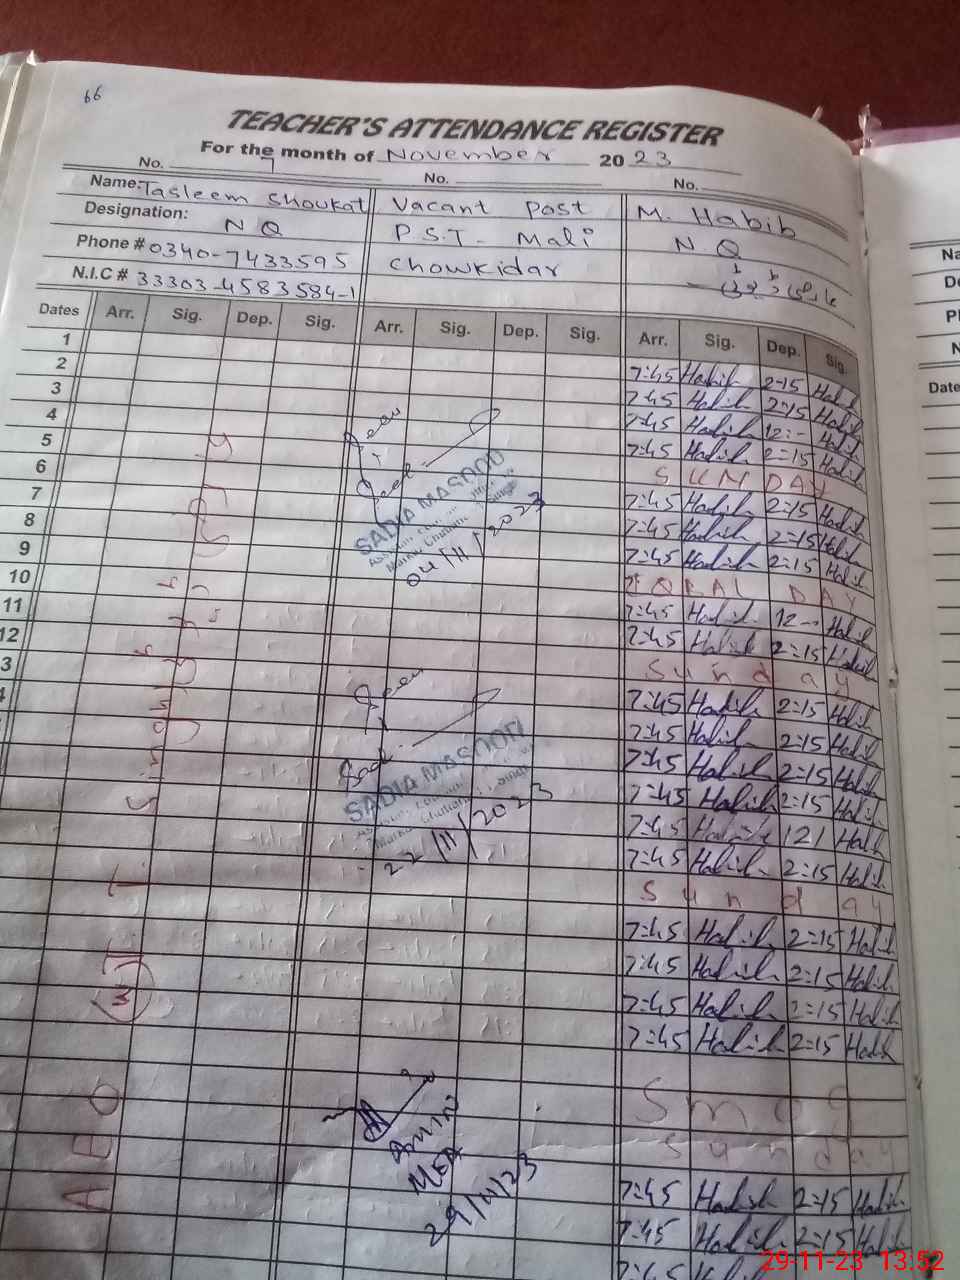 66
TEACHER'S ATTENDANCE REGISTER
For the month of November 2023
No. No. No.
Name: Tasleem Shoukat Vacant Post M. Habib
Designation: NQ P.S.T- Mali NQ
Phone # 0340-7433595 Chowkidar
N.I.C # 33303-4583584-1
Dates Arr. Sig. Dep. Sig. Arr. Sig. Dep. Sig. Arr. Sig. Dep. Sig.
1 7:45 Habib 2:15 Habib
2 7:45 Habib 2:15 Habib
3 7:45 Habib 12:- Habib
4 7:45 Habib 2:15 Habib
5 SUNDAY
6 7:45 Habib 2:15 Habib
7 7:45 Habib 2:15 Habib
8 7:45 Habib 2:15 Habib
9 IQBAL DAY
10 7:45 Habib 12 Habib
11 7:45 Habib 2:15 Habib
12 Sunday
3 7:45 Habib 2:15 Habib
4 7:45 Habib 2:15 Habib
7:45 Habib 2:15 Habib
7:45 Habib 2:15 Habib
7:45 Habib 12 Habib
7:45 Habib 2:15 Habib
Sunday
7:45 Habib 2:15 Habib
7:45 Habib 2:15 Habib
7:45 Habib 2:15 Habib
7:45 Habib 2:15 Habib
Smog
Sunday
7:45 Habib 2:15 Habib
7:45 Habib 2:15 Habib
7:45
Seen
SADIA MASOOD
04/11/2023
Seen
SADIA MASOOD
22/11/2023
Amin
MEA
29/11/23
AEO
29-11-23 13:52